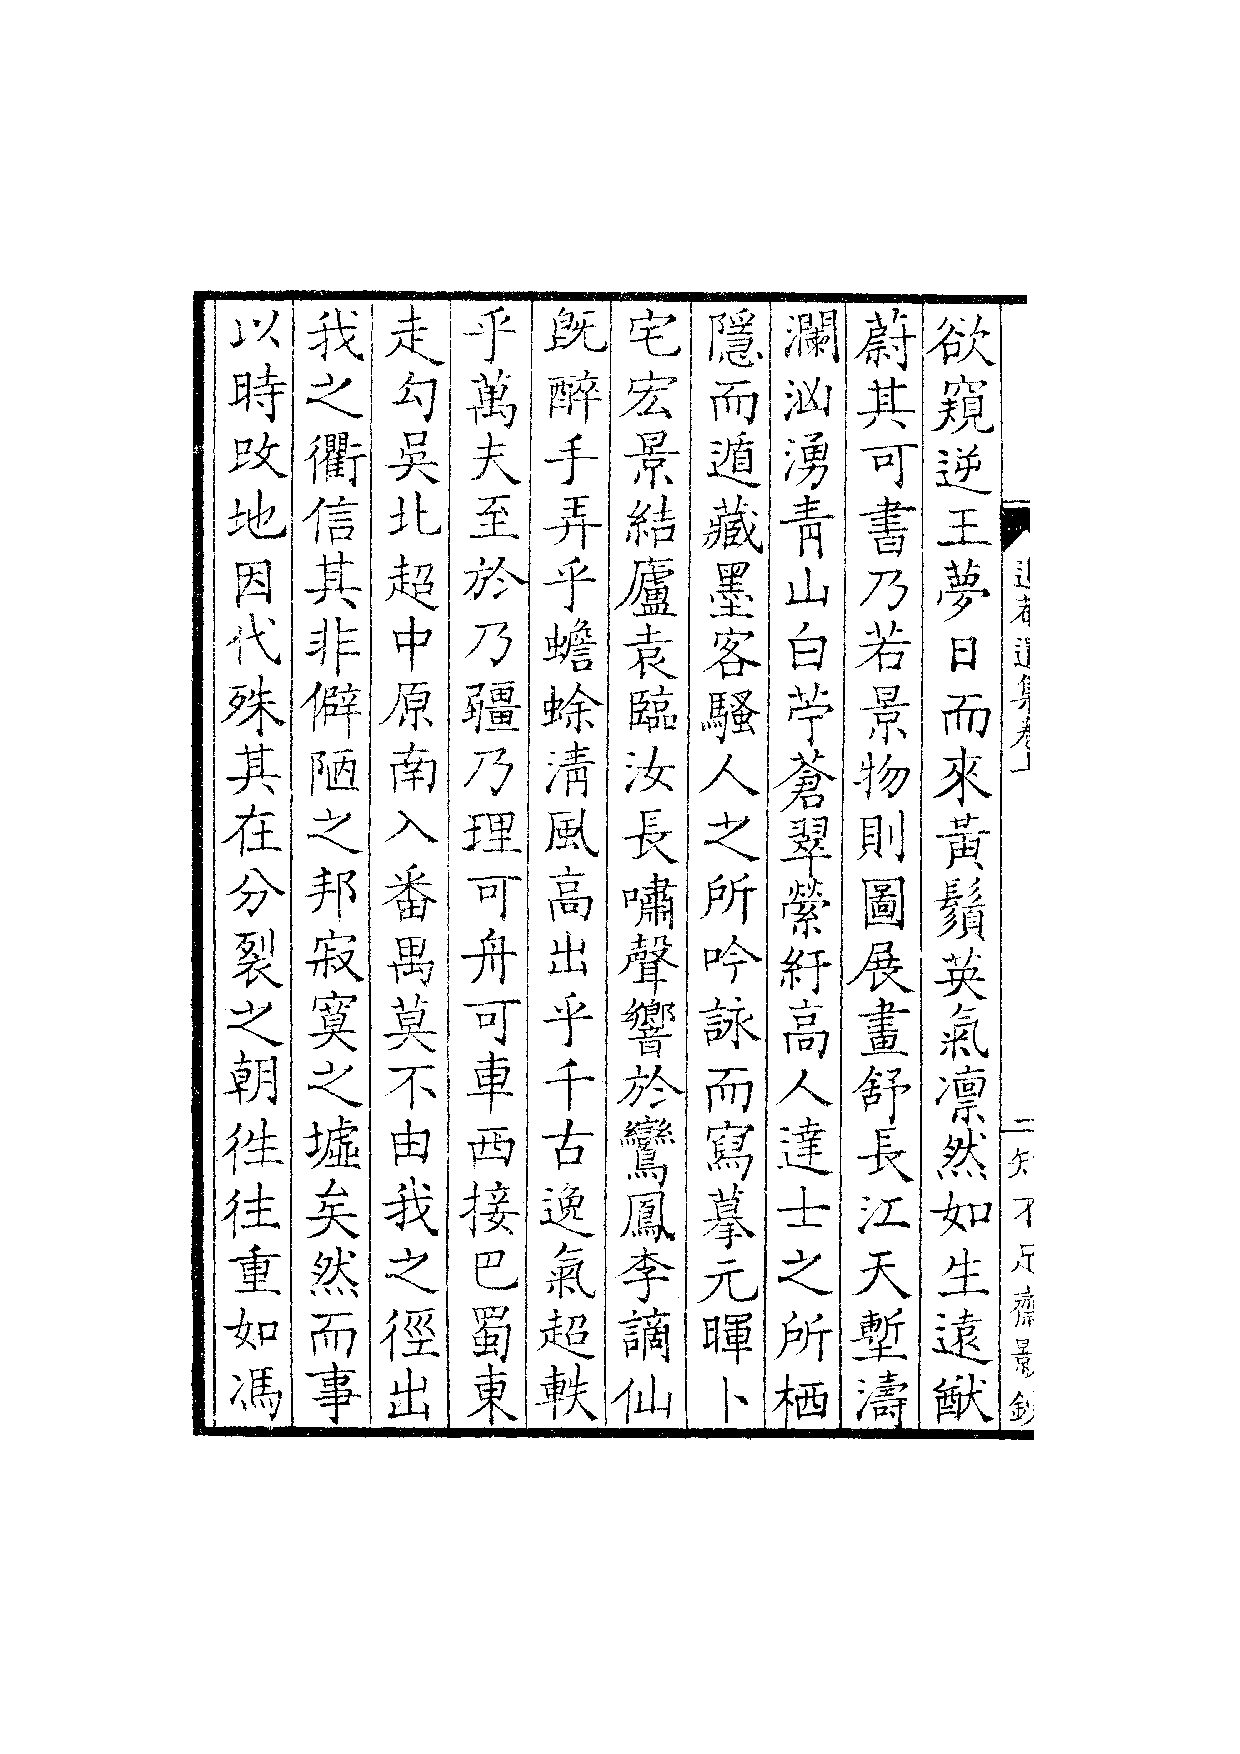 欲窺逆王夢日而來黃鬚英氣凛然如生遠猷
蔚其可書乃若景物則圖展畫舒長江天塹濤
瀾洶湧青山白苧蒼翠縈紆高人達士之所栖
隱而遁藏墨客騷人之所吟詠而寫摹元暉卜
宅宏景結廬袁臨汝長嘯聲響於鸞鳳李謫仙
既醉手弄乎蟾蜍清風高出乎千古逸氣超軼
乎萬夫至於乃疆乃理可舟可車西接巴蜀東
走勾吳北超中原南入番禺莫不由我之徑出
我之衢信其非僻陋之邦寂寞之墟矣然而事
以時改地因代殊其在分裂之朝徃徃重如馮
遺集卷上
二知不足齋景鈔